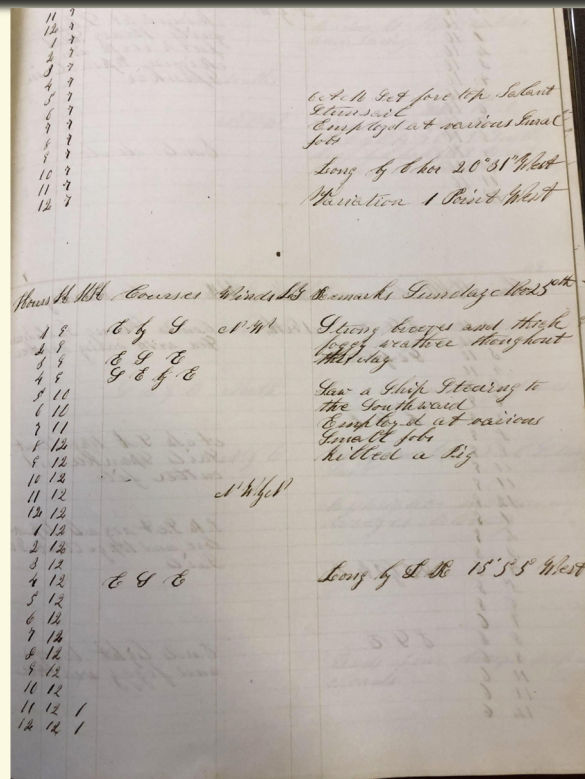 11 7
12 7
1 7
2 7
3 7
4 7
5 7
6 7
7 7
8 7
9 7
10 7
11 7
12 7
Set fore top Galant
Stunsail
Employd at various Smal
Jobs
Long by Chor 20° 31" West
Variation 1 Point West
Hours K HK Courses Winds LS Remarks Sunday Nov 25th
1 8 E by S N W Strong breeses and thick
2 8 foggy weather
3 9 E S E this day
4 9 S E by E
5 10 Saw a Ship Stearing to
6 10 the Southward
7 11 Employ d at vairious
8 12 Small jobs
9 12 killed a Pig
10 12
11 12 N W by N
12 12
1 12
2 12
3 12
4 12 E S E Long by D R 15° 55' West
5 12
6 12
7 12
8 12
9 12
10 12
11 12 1
12 12 1